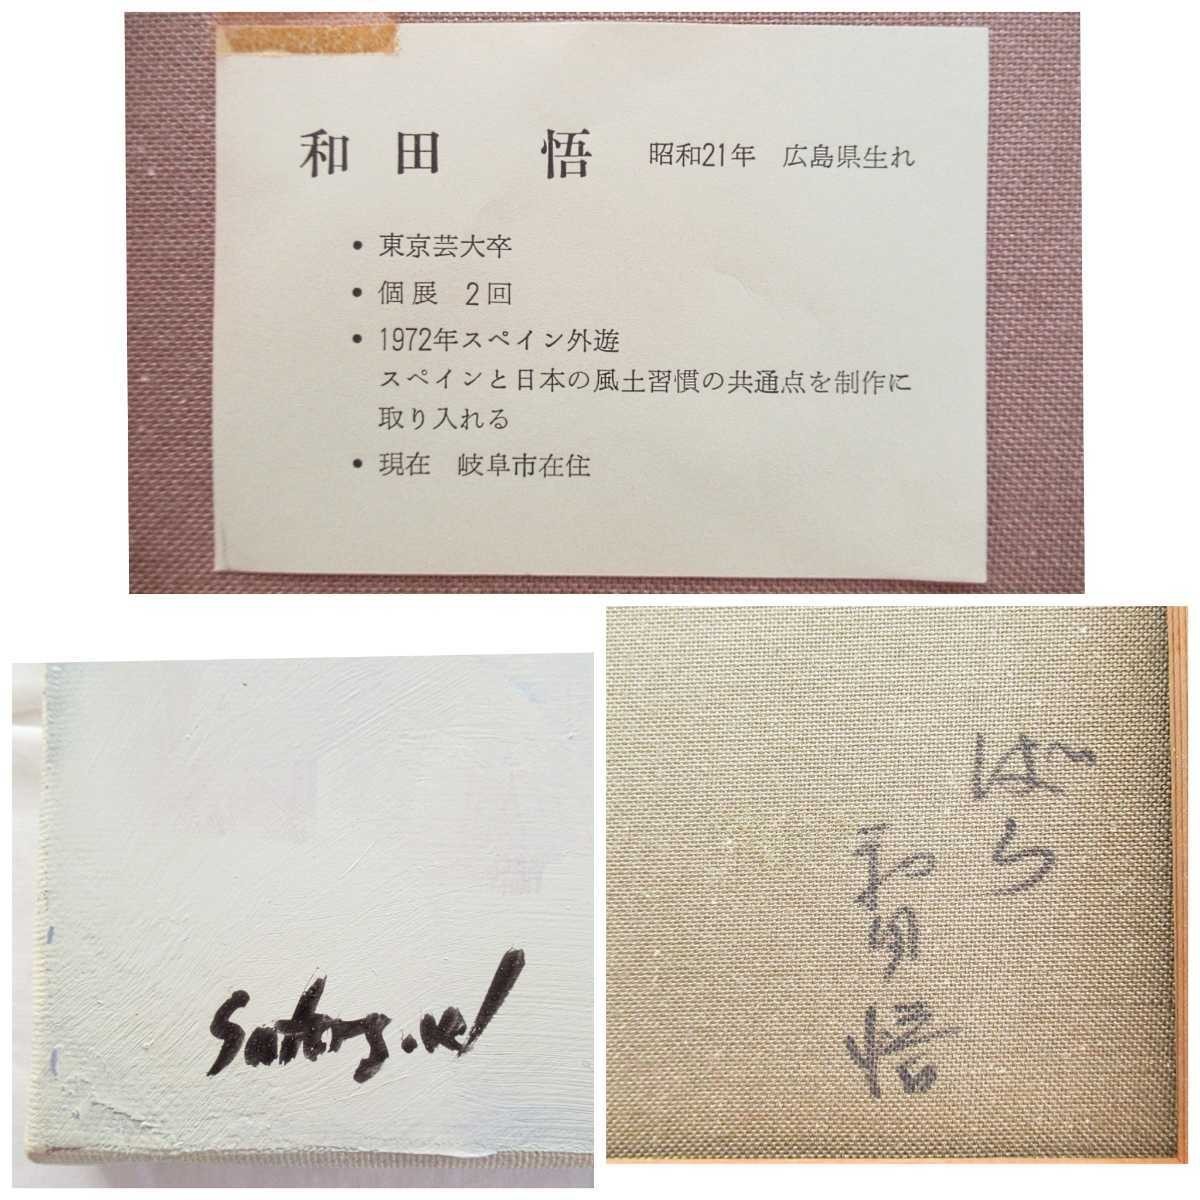 和田 悟 昭和21年 広島県生れ
• 東京芸大卒
• 個展 2回
• 1972年スペイン外遊
スペインと日本の風土習慣の共通点を制作に
取り入れる
• 現在 岐阜市在住
ばら
和田悟